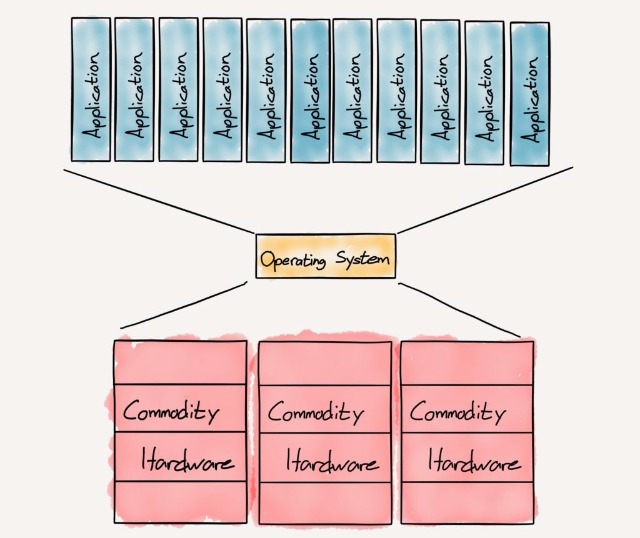 Application
Application
Application
Application
Application
Application
Application
Application
Application
Application
Application
Operating System
Commodity
Hardware
Commodity
Hardware
Commodity
Hardware